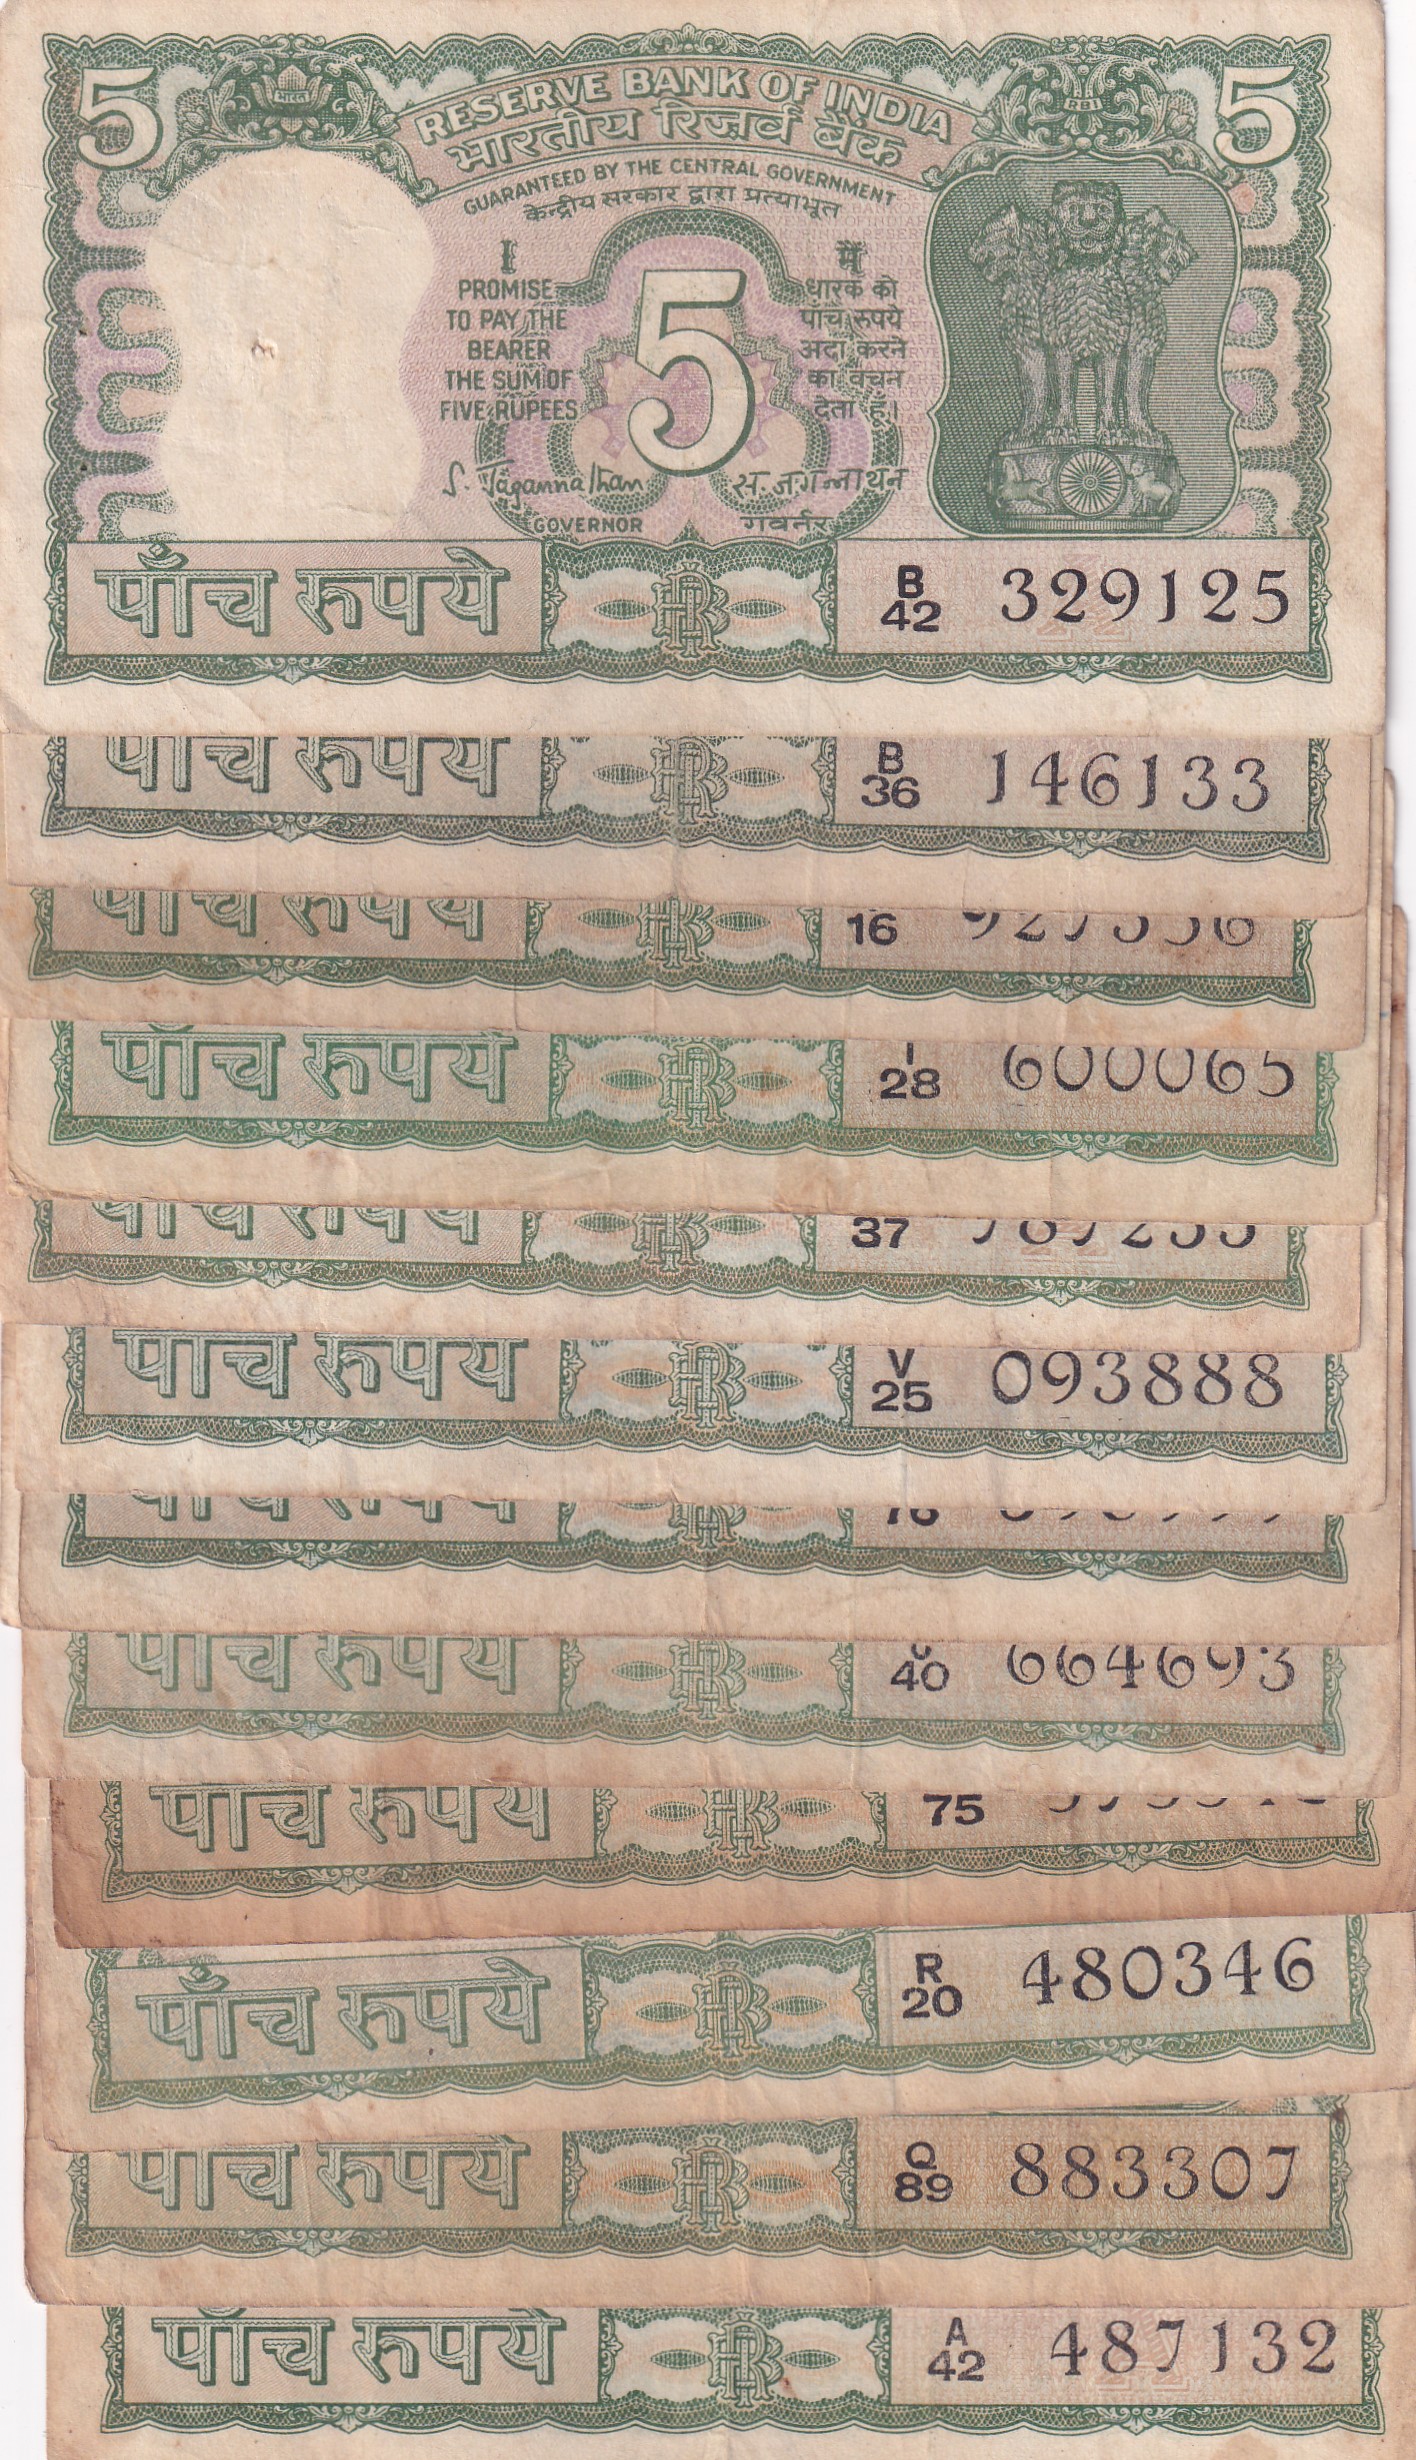 5 भारत RBI 5
RESERVE BANK OF INDIA
भारतीय रिज़र्व बैंक
GUARANTEED BY THE CENTRAL GOVERNMENT
केन्द्रीय सरकार द्वारा प्रत्याभूत
I
PROMISE
TO PAY THE
BEARER
THE SUM OF
FIVE RUPEES
5
मैं
धारक को
पाँच रुपये
अदा करने
का वचन
देता हूँ।
S. Jagannathan
GOVERNOR
स. जगन्नाथन
गवर्नर
पाँच रुपये B 42 329125
पाँच रुपये B 36 146133
पाँच रुपये 16
पाँच रुपये 28 600065
पाँच रुपये 37
पाँच रुपये V 25 093888
पाँच रुपये
पाँच रुपये 40 664693
पाँच रुपये 75
पाँच रुपये R 20 480346
पाँच रुपये Q 89 883307
पाँच रुपये A 42 487132